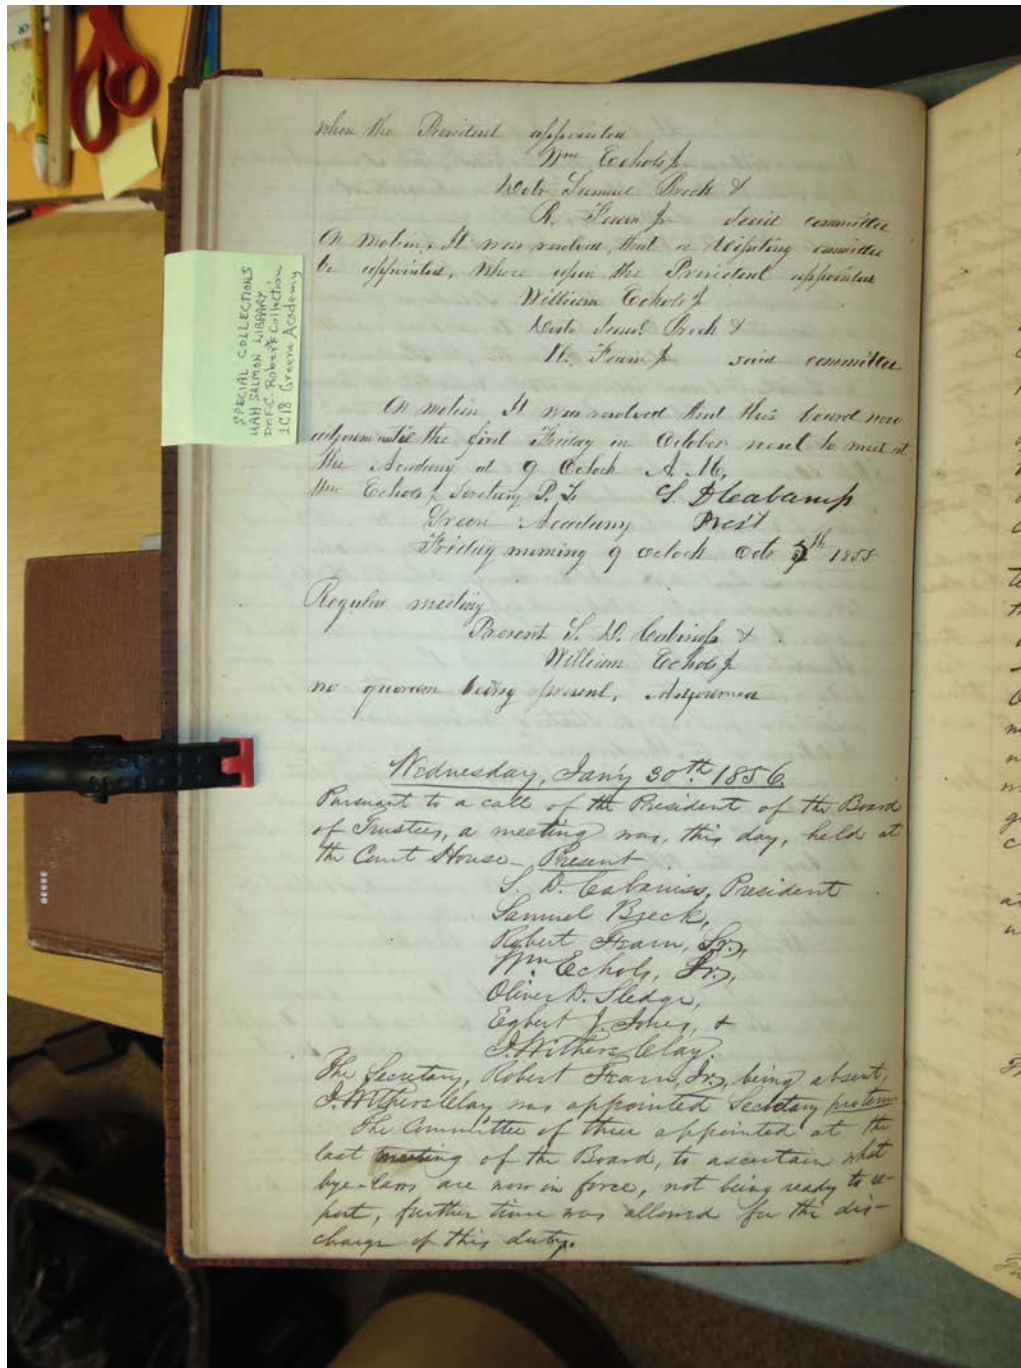 when the President appointed
Wm Echols Jr
Doctr Samuel Breck &
R. Fearn Jr said committee
On motion, It was resolved, that a visiting committee
be appointed, where upon the President appointed
William Echols Jr
Doctr Saml Breck &
R. Fearn Jr said committee
On motion It was resolved that this board now
adjourn until the first Friday in October next to meet at
the Academy at 9 Oclock A. M.
Wm Echols Jr Secretary P. T. S. D. Cabaniss
Green Academy Pres't
Friday morning 9 oclock Octr 5th 1855
Regular meeting
Present S. D. Cabiness &
William Echols Jr
no quorum being present, Adjourned
Wednesday, Jan'y 30th 1856.
Pursuant to a call of the President of the Board
of Trustees, a meeting was, this day, held at
the Court House - Present
S. D. Cabaniss, President
Samuel Breck,
Robert Fearn, Jr.,
Wm. Echols, Jr.,
Oliver D. Sledge,
Egbert J. Jones, &
J. Withers Clay.
The Secretary, Robert Fearn, Jr., being absent,
J. Withers Clay was appointed Secretary pro tem
The Committee of three appointed at the
last meeting of the Board, to ascertain what
bye-laws are now in force, not being ready to re-
port, further time was allowed for the dis-
charge of this duty.
SPECIAL COLLECTIONS
UAH SALMON LIBRARY
Dr. F.C. Roberts Collection
1C18 Greene Academy